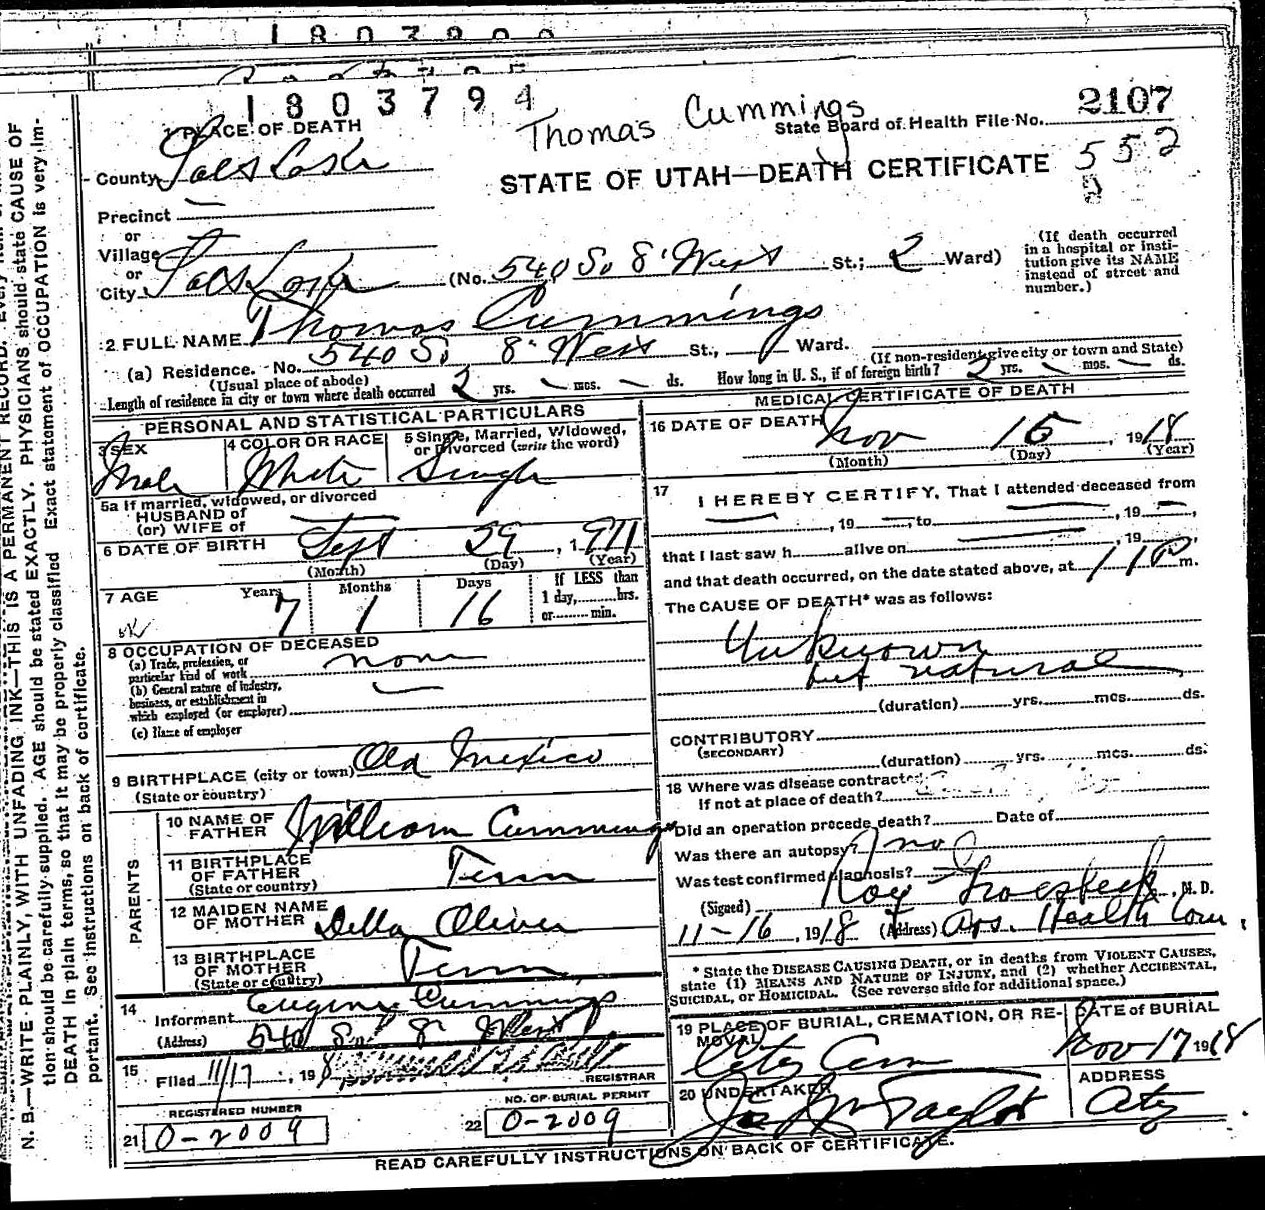 1803794
Thomas Cummings
State Board of Health File No. 2107
552
STATE OF UTAH—DEATH CERTIFICATE
1 PLACE OF DEATH
County Salt Lake
Precinct
or
Village
or
City Salt Lake (No. 540 So 8' West St.; 2 Ward)
(If death occurred in a hospital or insti-
tution give its NAME
instead of street and
number.)
2 FULL NAME Thomas Cummings
(a) Residence. No. 540 So 8' West St., Ward.
(Usual place of abode)
(If non-resident give city or town and State)
Length of residence in city or town where death occurred 2 yrs. — mos. — ds. How long in U. S., if of foreign birth? 2 yrs. — mos. — ds.
PERSONAL AND STATISTICAL PARTICULARS
3 SEX Male
4 COLOR OR RACE White
5 Single, Married, Widowed,
or Divorced (write the word) Single
5a If married, widowed, or divorced
HUSBAND of
(or) WIFE of
6 DATE OF BIRTH Sept 29, 1911
(Month) (Day) (Year)
7 AGE Years 7 Months 1 Days 16
If LESS than
1 day, hrs.
or min.
8 OCCUPATION OF DECEASED
(a) Trade, profession, or
particular kind of work none
(b) General nature of industry,
business, or establishment in
which employed (or employer)
(c) Name of employer
9 BIRTHPLACE (city or town) Old Mexico
(State or country)
PARENTS
10 NAME OF
FATHER William Cummings
11 BIRTHPLACE
OF FATHER Tenn
(State or country)
12 MAIDEN NAME
OF MOTHER Della Oliver
13 BIRTHPLACE
OF MOTHER Tenn
(State or country)
14
Informant Eugene Cummings
(Address) 540 So 8' West
15
Filed 11/17, 1918
REGISTRAR
REGISTERED NUMBER
21 O-2009
NO. OF BURIAL PERMIT
22 O-2009
MEDICAL CERTIFICATE OF DEATH
16 DATE OF DEATH Nov 15, 1918
(Month) (Day) (Year)
17
I HEREBY CERTIFY, That I attended deceased from
, 19 , to , 19 ,
that I last saw h alive on , 19 ,
and that death occurred, on the date stated above, at 1 10 P m.
The CAUSE OF DEATH* was as follows:
Unknown
but natural
(duration) yrs. mos. ds.
CONTRIBUTORY
(SECONDARY)
(duration) yrs. mos. ds.
18 Where was disease contracted
if not at place of death?
Did an operation precede death? Date of
Was there an autopsy? no
Was test confirmed diagnosis?
(Signed) Roy Groesbeck, M. D.
11-16, 1918 (Address) Ars. Health Com.
* State the DISEASE CAUSING DEATH, or in deaths from VIOLENT CAUSES,
state (1) MEANS AND NATURE OF INJURY, and (2) whether ACCIDENTAL,
SUICIDAL, or HOMICIDAL. (See reverse side for additional space.)
19 PLACE OF BURIAL, CREMATION, OR RE-
MOVAL
City Cem
DATE OF BURIAL
Nov 17 1918
20 UNDERTAKER
Jos Wm Taylor
ADDRESS
City
READ CAREFULLY INSTRUCTIONS ON BACK OF CERTIFICATE.
N. B.—WRITE PLAINLY, WITH UNFADING INK—THIS IS A PERMANENT RECORD.
tion should be carefully supplied. AGE should be stated EXACTLY. PHYSICIANS should state CAUSE OF
DEATH in plain terms, so that it may be properly classified Exact statement of OCCUPATION is very im-
portant. See instructions on back of certificate.